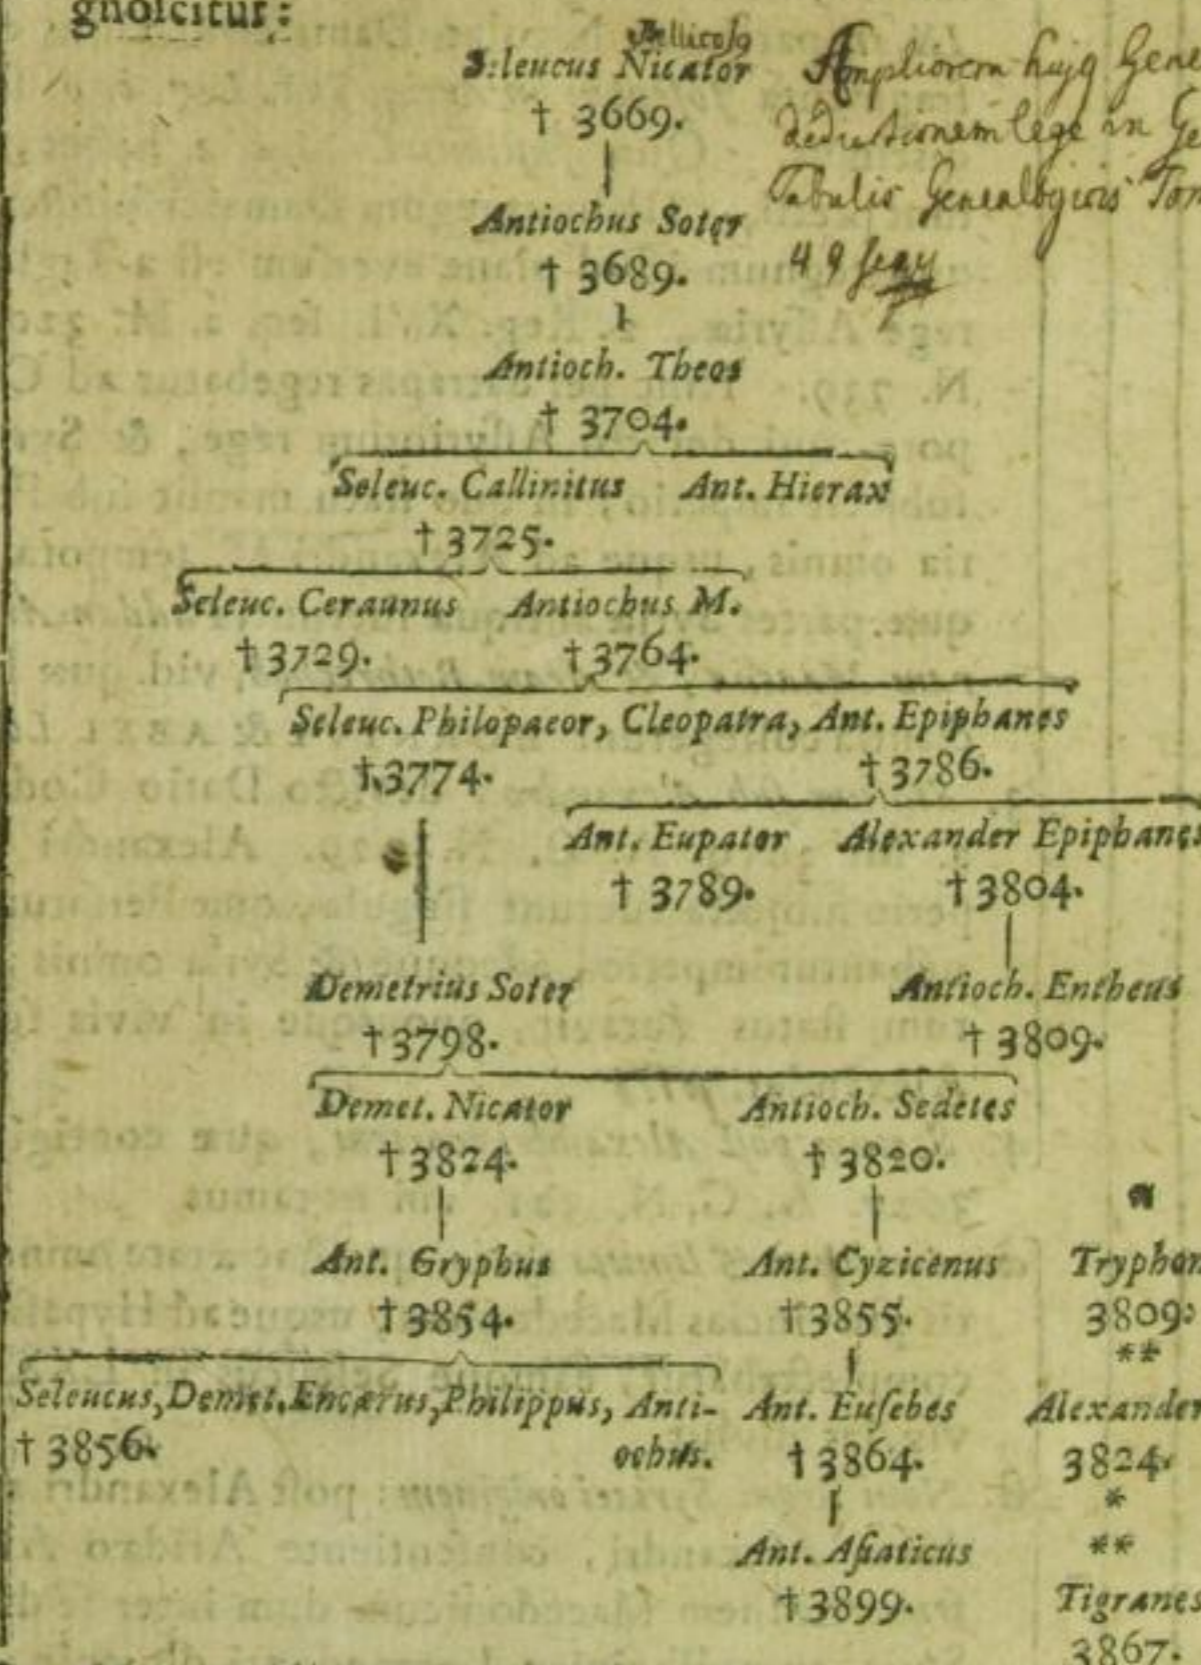 gnoscitur:
Bellicosq
Seleucus Nicator
† 3669.
Ampliorem hujq Gene
deductionem lege in Ge
Tabulis Genealogicis Tom
49 seqq
Antiochus Soter
† 3689.
Antioch. Theos
† 3704.
Seleuc. Callinitus Ant. Hierax
† 3725.
Seleuc. Ceraunus Antiochus M.
† 3729. † 3764.
Seleuc. Philopaeor, Cleopatra, Ant. Epiphanes
† 3774. † 3786.
Ant. Eupator Alexander Epiphanes
† 3789. † 3804.
Demetrius Soter Antioch. Entheus
† 3798. † 3809.
Demet. Nicator Antioch. Sedetes
† 3824. † 3820.
Ant. Gryphus Ant. Cyzicenus Tryphon
† 3854. † 3855. 3809.
**
Seleucus, Demet. Encærus, Philippus, Anti- Ant. Euſebes Alexander
† 3856. ochus. † 3864. 3824.
*
Ant. Aſiaticus **
† 3899. Tigranes
3867.